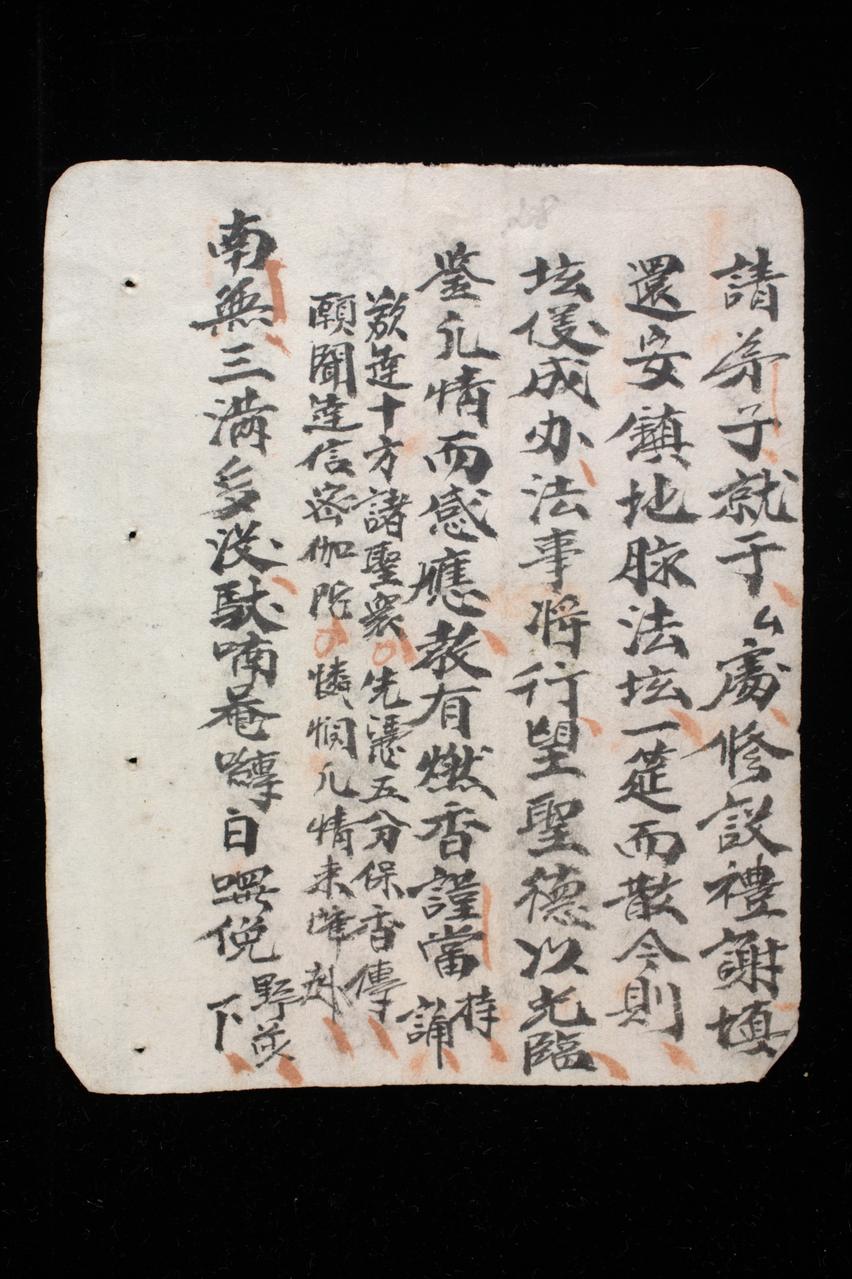 請弟子就于厶處修設禮謝填
還安鎮地脉法坛一筵而散今則
坛仪成办法事将行望聖德以光臨
鉴凡情而感應教有燃香謹當持誦
欵達十方諸聖衆先憑五分保香傳
願聞達信密伽陀憐憫凡情来降赴
南無三满多没馱喃菴嚩日囉悦野莎下